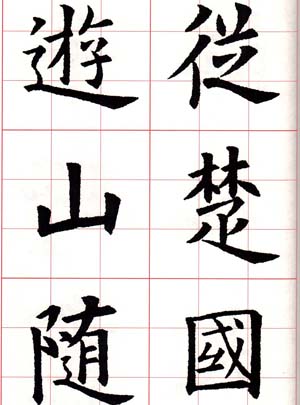 従楚國
遊山随